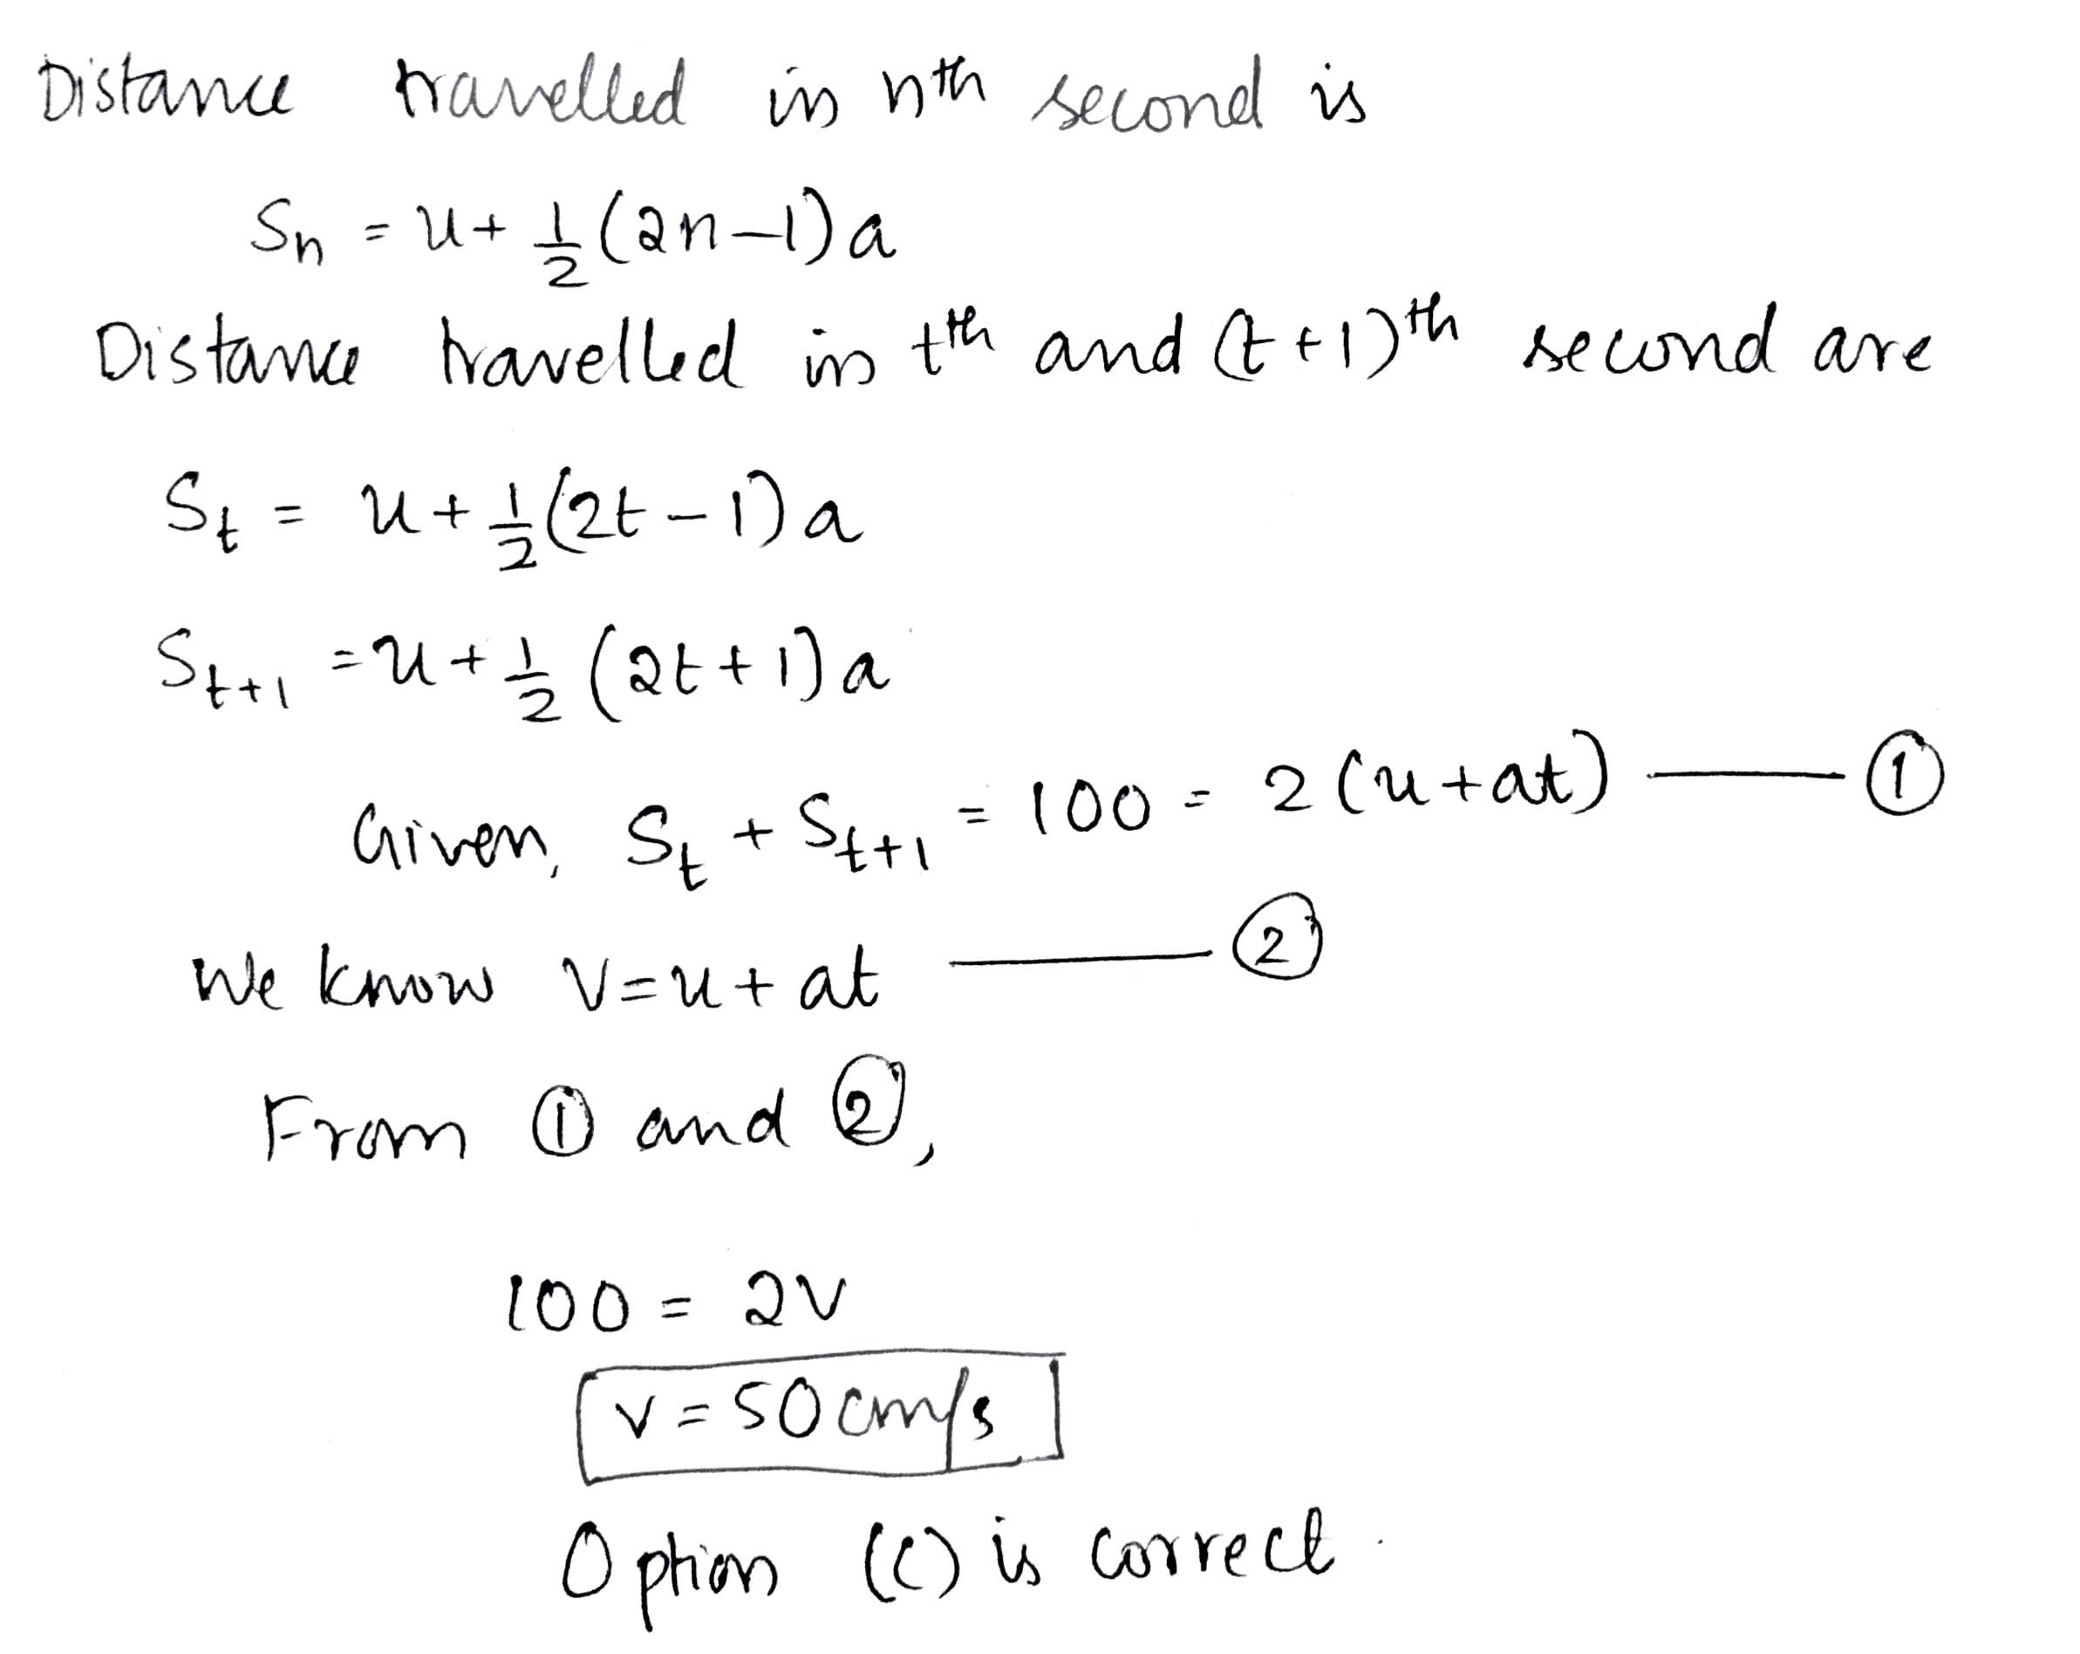 Distance travelled in nth second is
Sn = u + 1/2 (2n-1) a
Distance travelled in tth and (t+1)th second are
St = u + 1/2 (2t-1) a
St+1 = u + 1/2 (2t+1) a
Given, St + St+1 = 100 = 2(u+at) — ①
We know V=u+at — ②
From ① and ②,
100 = 2V
V = 50 cm/s
Option (C) is correct.